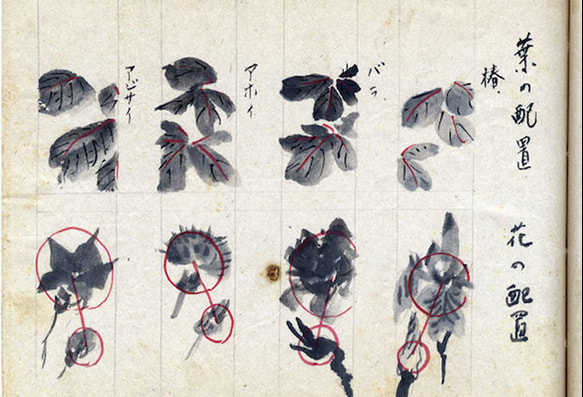 葉の配置
椿、
バラ、
アホイ
アジサイ
花の配置